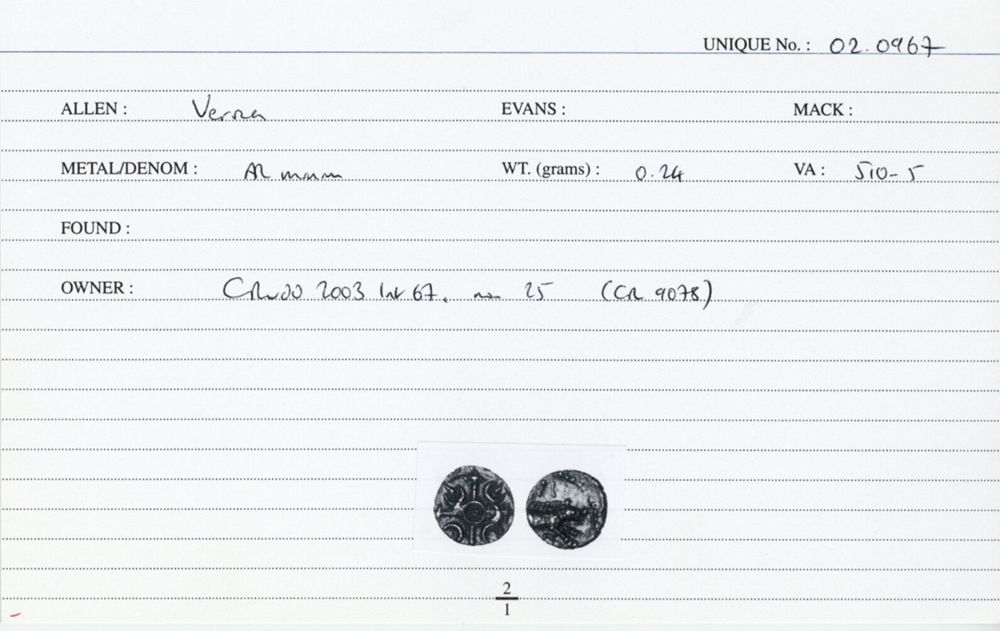 UNIQUE No. : 02.0967
ALLEN : Verica EVANS : MACK :
METAL/DENOM : AR minim WT. (grams) : 0.24 VA : 510-5
FOUND :
OWNER : 2003 67. no 25 (CR 9078)
2
1